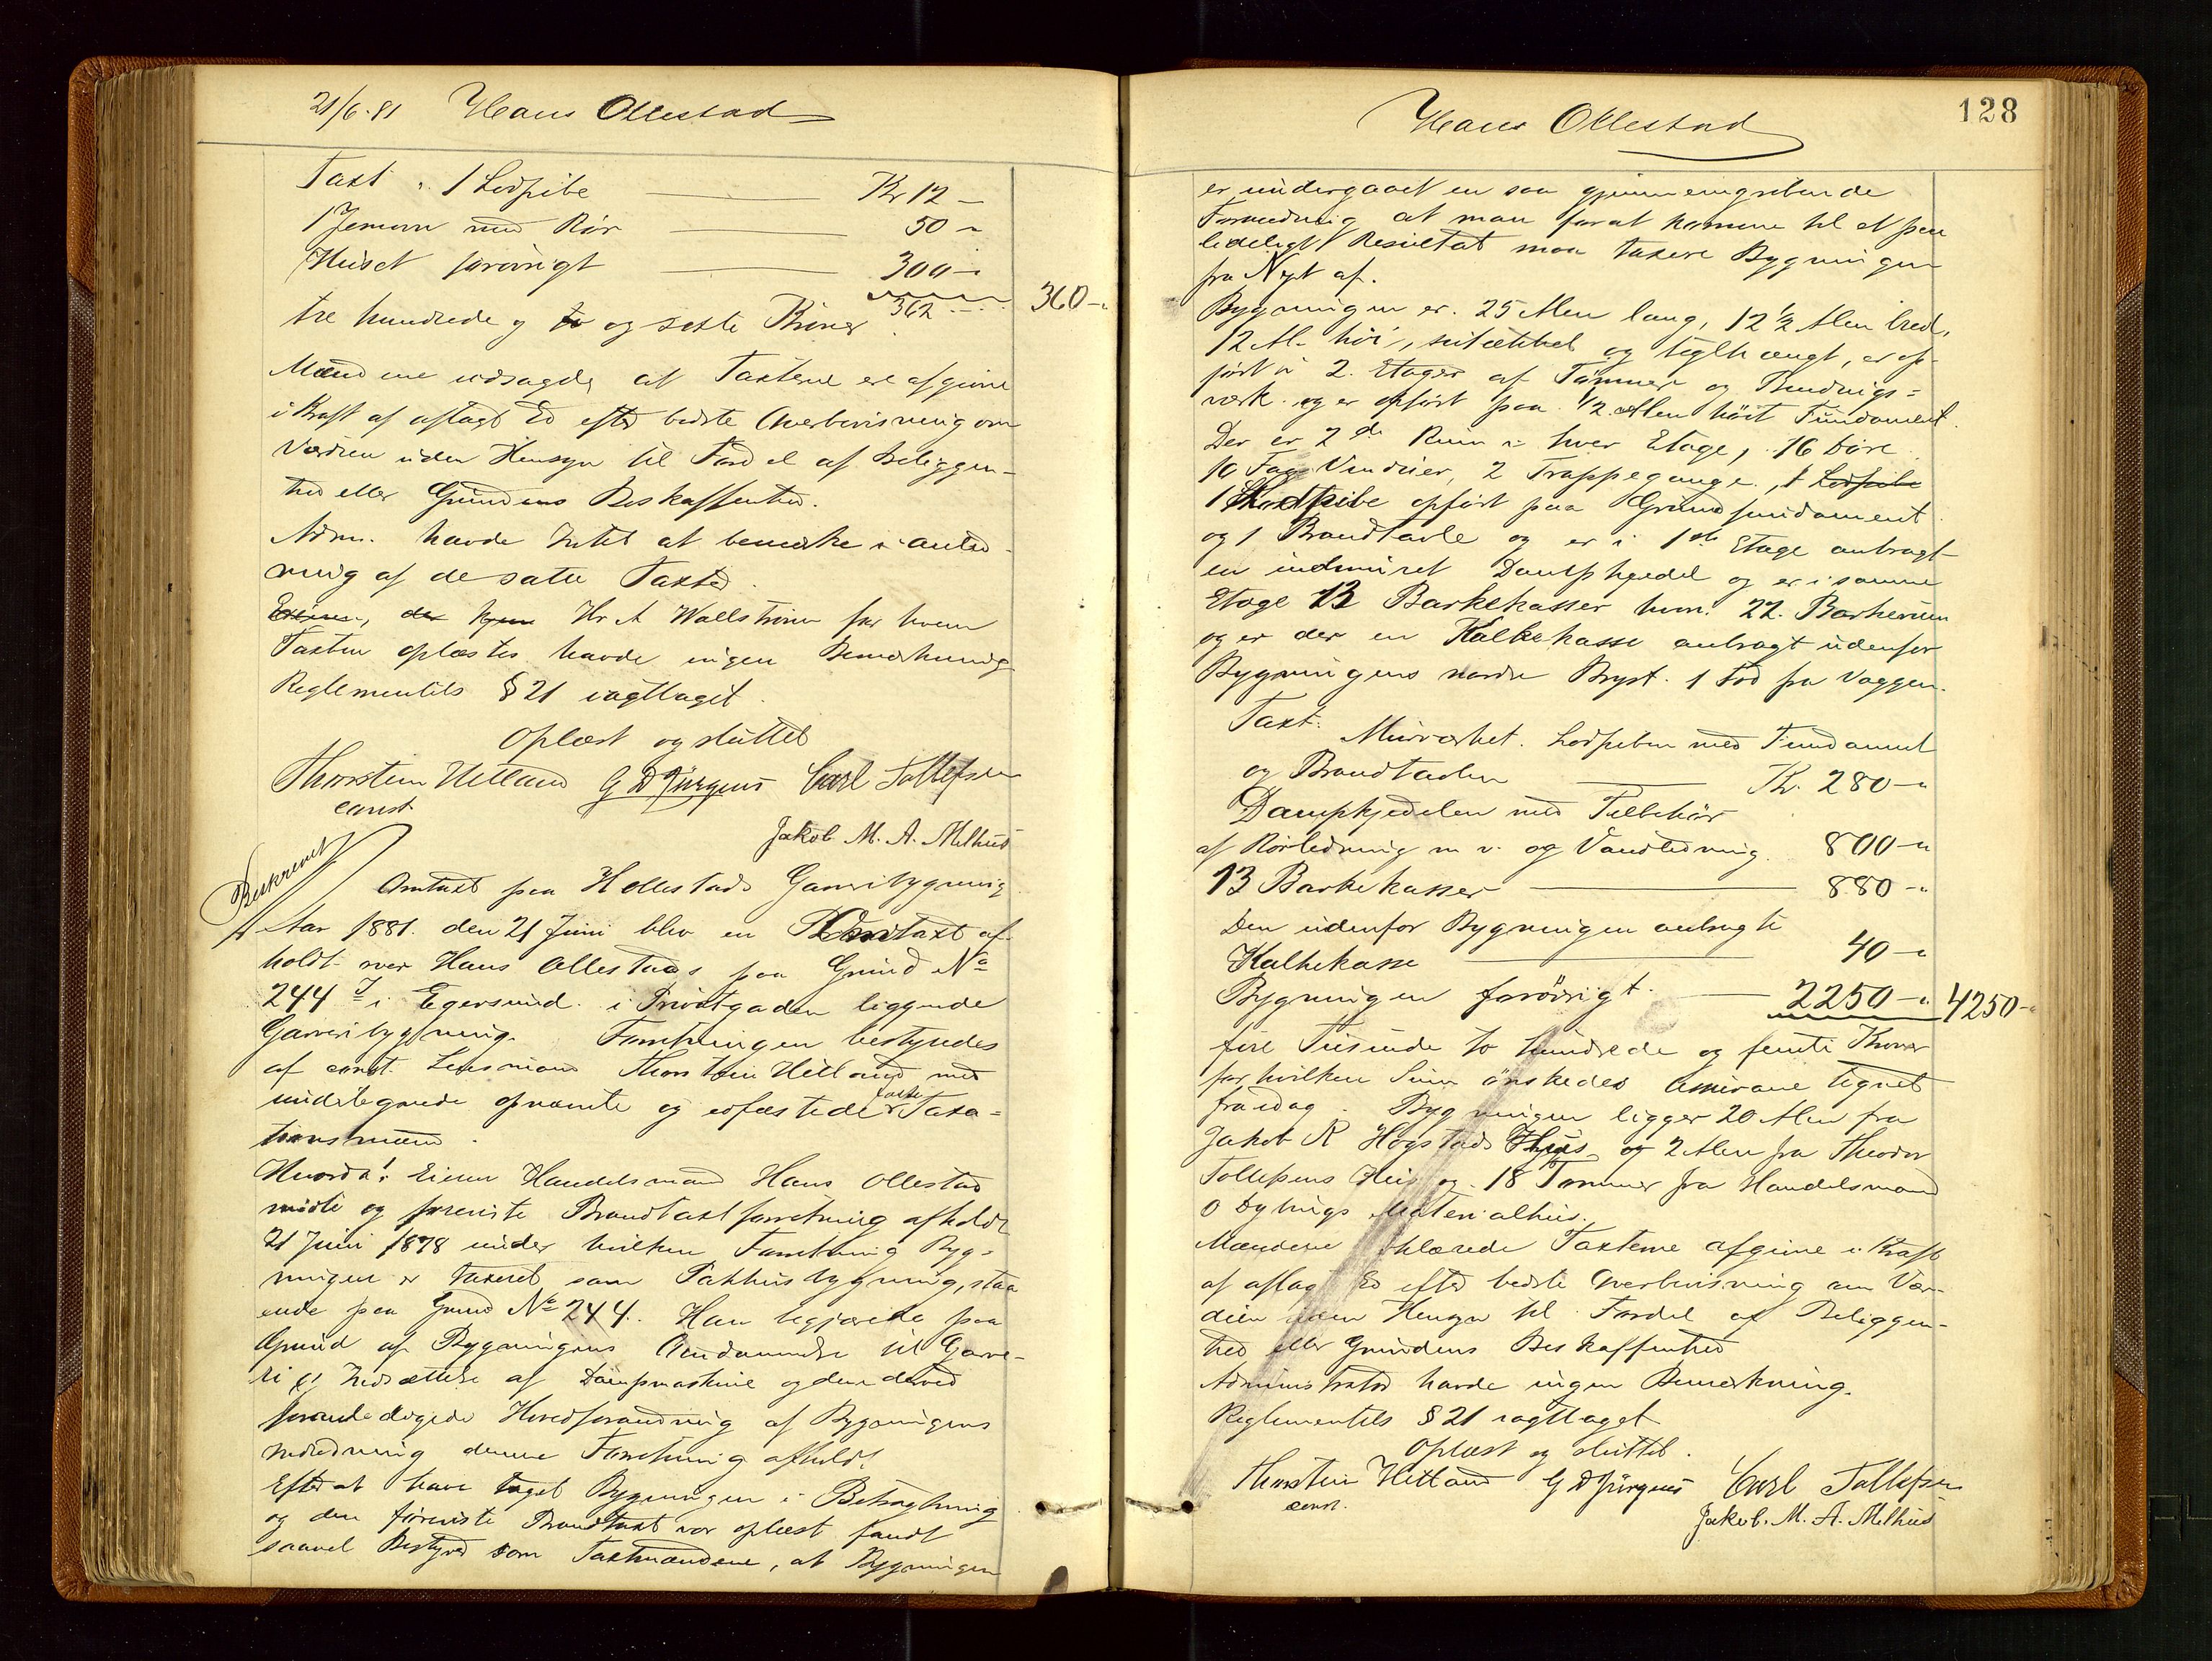 21/6.81 Hans Ollestad
Taxt: 1 Lodpibe Kr 12 -
1 Jernovn med Rør 50 -
Huset forøvrigt 300 -
362 360 -
tre hundrede og to og sexte Kroner
Mændene udsagde at Taxterne ere afgivne
i Kraft af aflagt Ed efter bedste Overbevisning om
Værdien uden Hensyn til Fordel af Beliggen-
hed eller Grundens Beskaffenhed.
Adm. havde Intet at bemerke i anled-
ning af de satte Taxter.
Eieren, der Hr A Wallstrøm for hvem
Taxten oplæstes havde ingen Bemerkning
Reglementets § 21 iagttaget.
Oplæst og sluttet
Thorstein Hetland G D Jürgens Carl Tollefsen
const
Jakob M. A. Melhus
Beskrevet
Omtaxt paa H Ollestads Garveribygning
Aar 1881. den 21 Juni blev en Omtaxt af-
holdt over Hans Ollestads paa Grund No
244 i Egersund i Privatgaden liggende
Garveribygning. Forretningen bestyredes
af const. Lensmand Thorstein Hetland med
undertegnede opnævnte og edfæstede faste Taxa-
tionsmænd.
Hvorda! Eieren Handelsmand Hans Ollestad
mødte og foreviste Brandtaxtforretning afholdt
21 Juni 1878 under hvilken Forretning Byg-
ningen er taxeret som Pakhusbygning, staa
ende paa Grund No 244. Han begjærede paa
Grund af Bygningens Omdannelse til Garve-
ri og Indsættelse af Dampmaskine og den derved
foranledigede Hovedforandring af Bygningens
Indredning denne Forretning afholdt.
Efter at have taget Bygningen i Betragtning
og den foreviste Brandtaxt var oplæst fandt
saavel Bestyrer som Taxtmændene, at Bygningen
Hans Ollestad 128
er undergaaet en saa gjennemgribende
Forandring at man for at komme til et paa
lideligt Resultat maa taxere Bygningen
fra Nyt af.
Bygningen er 25 Alen lang, 12 1/2 Alen bred,
12 Al. høi, sutækket og teglhængt, er op-
ført i 2. Etager af Tømmer og Bindings=
værk og er opført paa 1/2 Alen høit Fundament.
Der er 2de Rum i hver Etage, 16 Døre
10 Fag Vinduer, 2 Trappegange, 1 Lodpibe
1 Lodpibe opført paa Grundfundament
og 1 Brandtavle og er i 1ste Etage anbragt
en indmuret Dampkjedel og er i samme
Etage 13 Barkekasser hvori 22. Barkerum
og er der en Kalkekasse anbragt udenfor
Bygningens nordre Bryst. 1 Fod fra Væggen.
Taxt: Murværket. Lodpiben med Fundament
og Brandtavlen Kr. 280 -
Dampkjedelen med Tilbehør
af Rørledning m v. og Vandledning. 800 -
13 Barkekasser 880 -
Den udenfor Bygningen anbragte
Kalkekasse 40 -
Bygningen forøvrigt. 2250 - 4250 -
fire Tusinde to hundrede og femti Kroner
for hvilken Sum ønskedes Assurance tegnet
fra idag. Bygningen ligger 20 Alen fra
Jakob R Høgstads Huus og 2 Alen fra Theodor
Tollefsens Hus og 18 Tommer fra Handelsmand
O Dybings Materialhus.
Mændene erklærede Taxterne afgivne i Kraft
af aflagt Ed efter bedste Overbevisning om Vær-
dien uden Hensyn til Fordel af Beliggen-
hed eller Grundens Beskaffenhed
Administrator havde ingen Bemerkning.
Reglementets § 21 iagttaget
Oplæst og sluttet.
Thorstein Hetland G D Jürgens Carl Tollefsen
const.
Jakob. M. A. Melhus